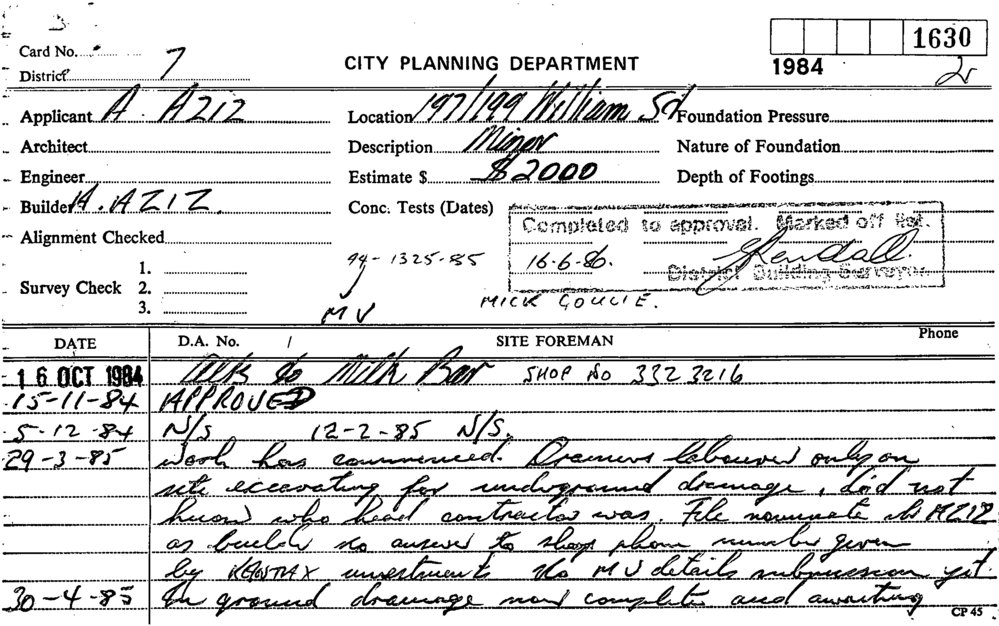 Card No.
District 7
CITY PLANNING DEPARTMENT
1630
1984
2
Applicant A. AZIZ
Location 197/199 William St
Foundation Pressure
Architect
Description Minor
Nature of Foundation
Engineer
Estimate $ $2000
Depth of Footings
Builder A. AZIZ.
Conc. Tests (Dates)
Completed to approval. Marked off list.
16-6-86.
District Building Surveyor
Alignment Checked
Survey Check 1.
2.
3.
1325-85
MV
MICK GOULIE.
DATE D.A. No. / SITE FOREMAN Phone
16 OCT 1984 Alts to Milk Bar SHOP NO 332 3216
15-11-84 APPROVED
5-12-84 N/S 12-2-85 N/S.
29-3-85 Work has commenced. Drainers labourer only on
site excavating for underground drainage, did not
know who head contractor was. File nominate Mr AZIZ
as builder no answer to shop phone number given
by investments No MV details submission yet.
30-4-85 In ground drainage now complete and awaiting
CP 45